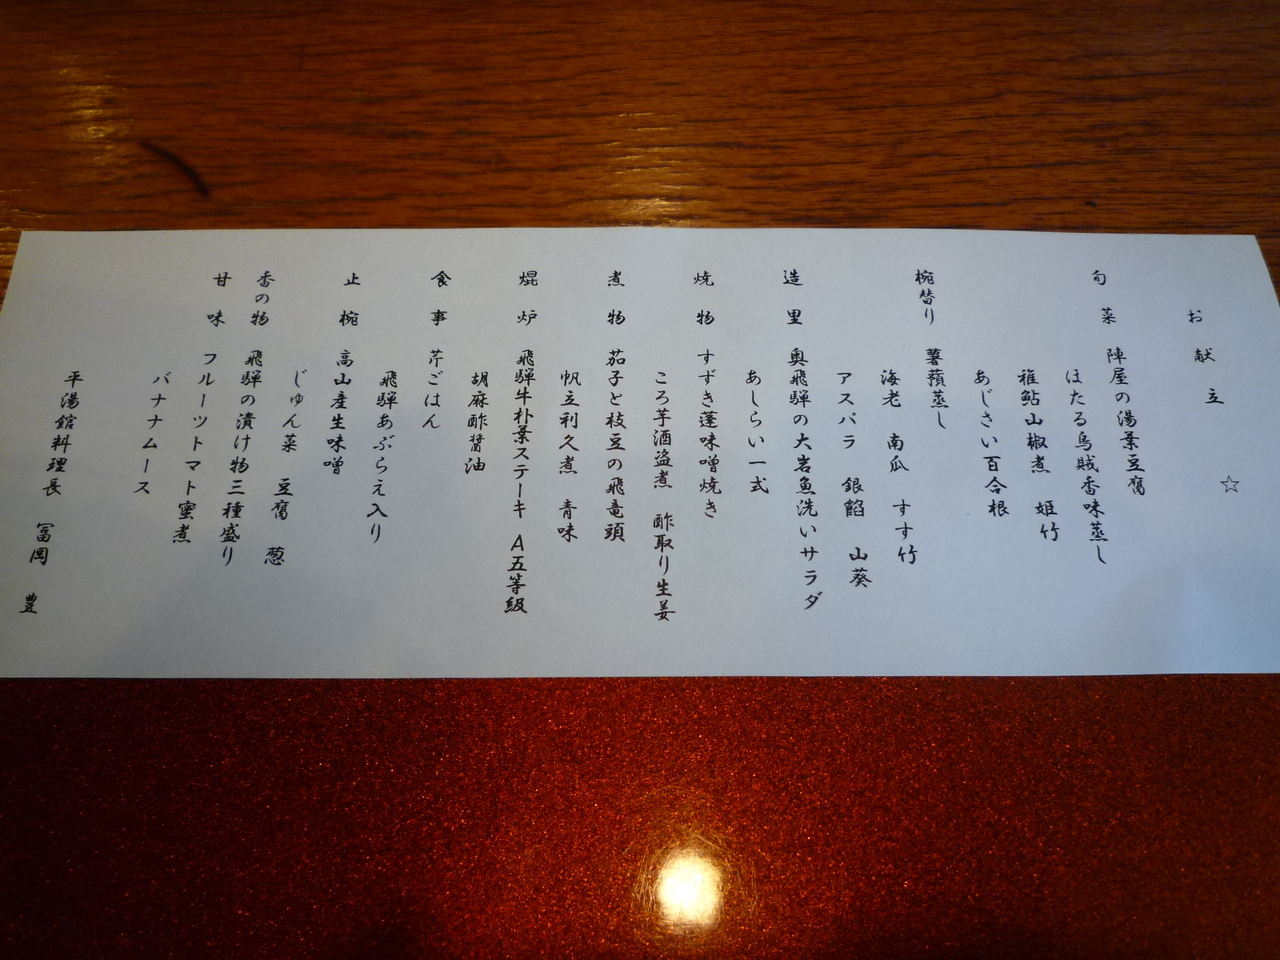 お献立 ☆
旬菜 陣屋の湯葉豆腐
ほたる烏賊香味蒸し
稚鮎山椒煮 姫竹
あじさい百合根
椀替り 薯蕷蒸し
海老 南瓜 すす竹
アスパラ 銀餡 山葵
造里 奥飛騨の大岩魚洗いサラダ
あしらい一式
焼物 すずき蓬味噌焼き
ころ芋酒盗煮 酢取り生姜
煮物 茄子と枝豆の飛竜頭
帆立利久煮 青味
焜炉 飛騨牛朴葉ステーキ A五等級
胡麻酢醤油
食事 芹ごはん
飛騨あぶらえ入り
止椀 高山産生味噌
じゅん菜 豆腐 葱
香の物 飛騨の漬け物三種盛り
甘味 フルーツトマト蜜煮
バナナムース
平湯館料理長 冨岡 豊